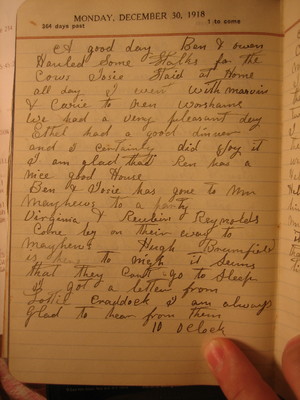 MONDAY, DECEMBER 30, 1918
364 days past
1 to come
A good day Ben & owen
Hauled Some Stalks for the
Cows Josie Staid at Home
all day I went with marvin
& Carie to Ben Worshams
We had a very pleasant day
Ethel had a good dinner
and I certainly did Joy it
I am glad that Ben has a
nice good Home
Ben & Josie has gone to Mr
Mayhews to a party
Virginia & Reuben Reynolds
Come by on their way to
Mayhews Hugh Brumfield
is here to night it Seems
that they Cant go to Sleep
I got a letter from
Lottie Craddock I am always
Glad to hear from them
10 oClock